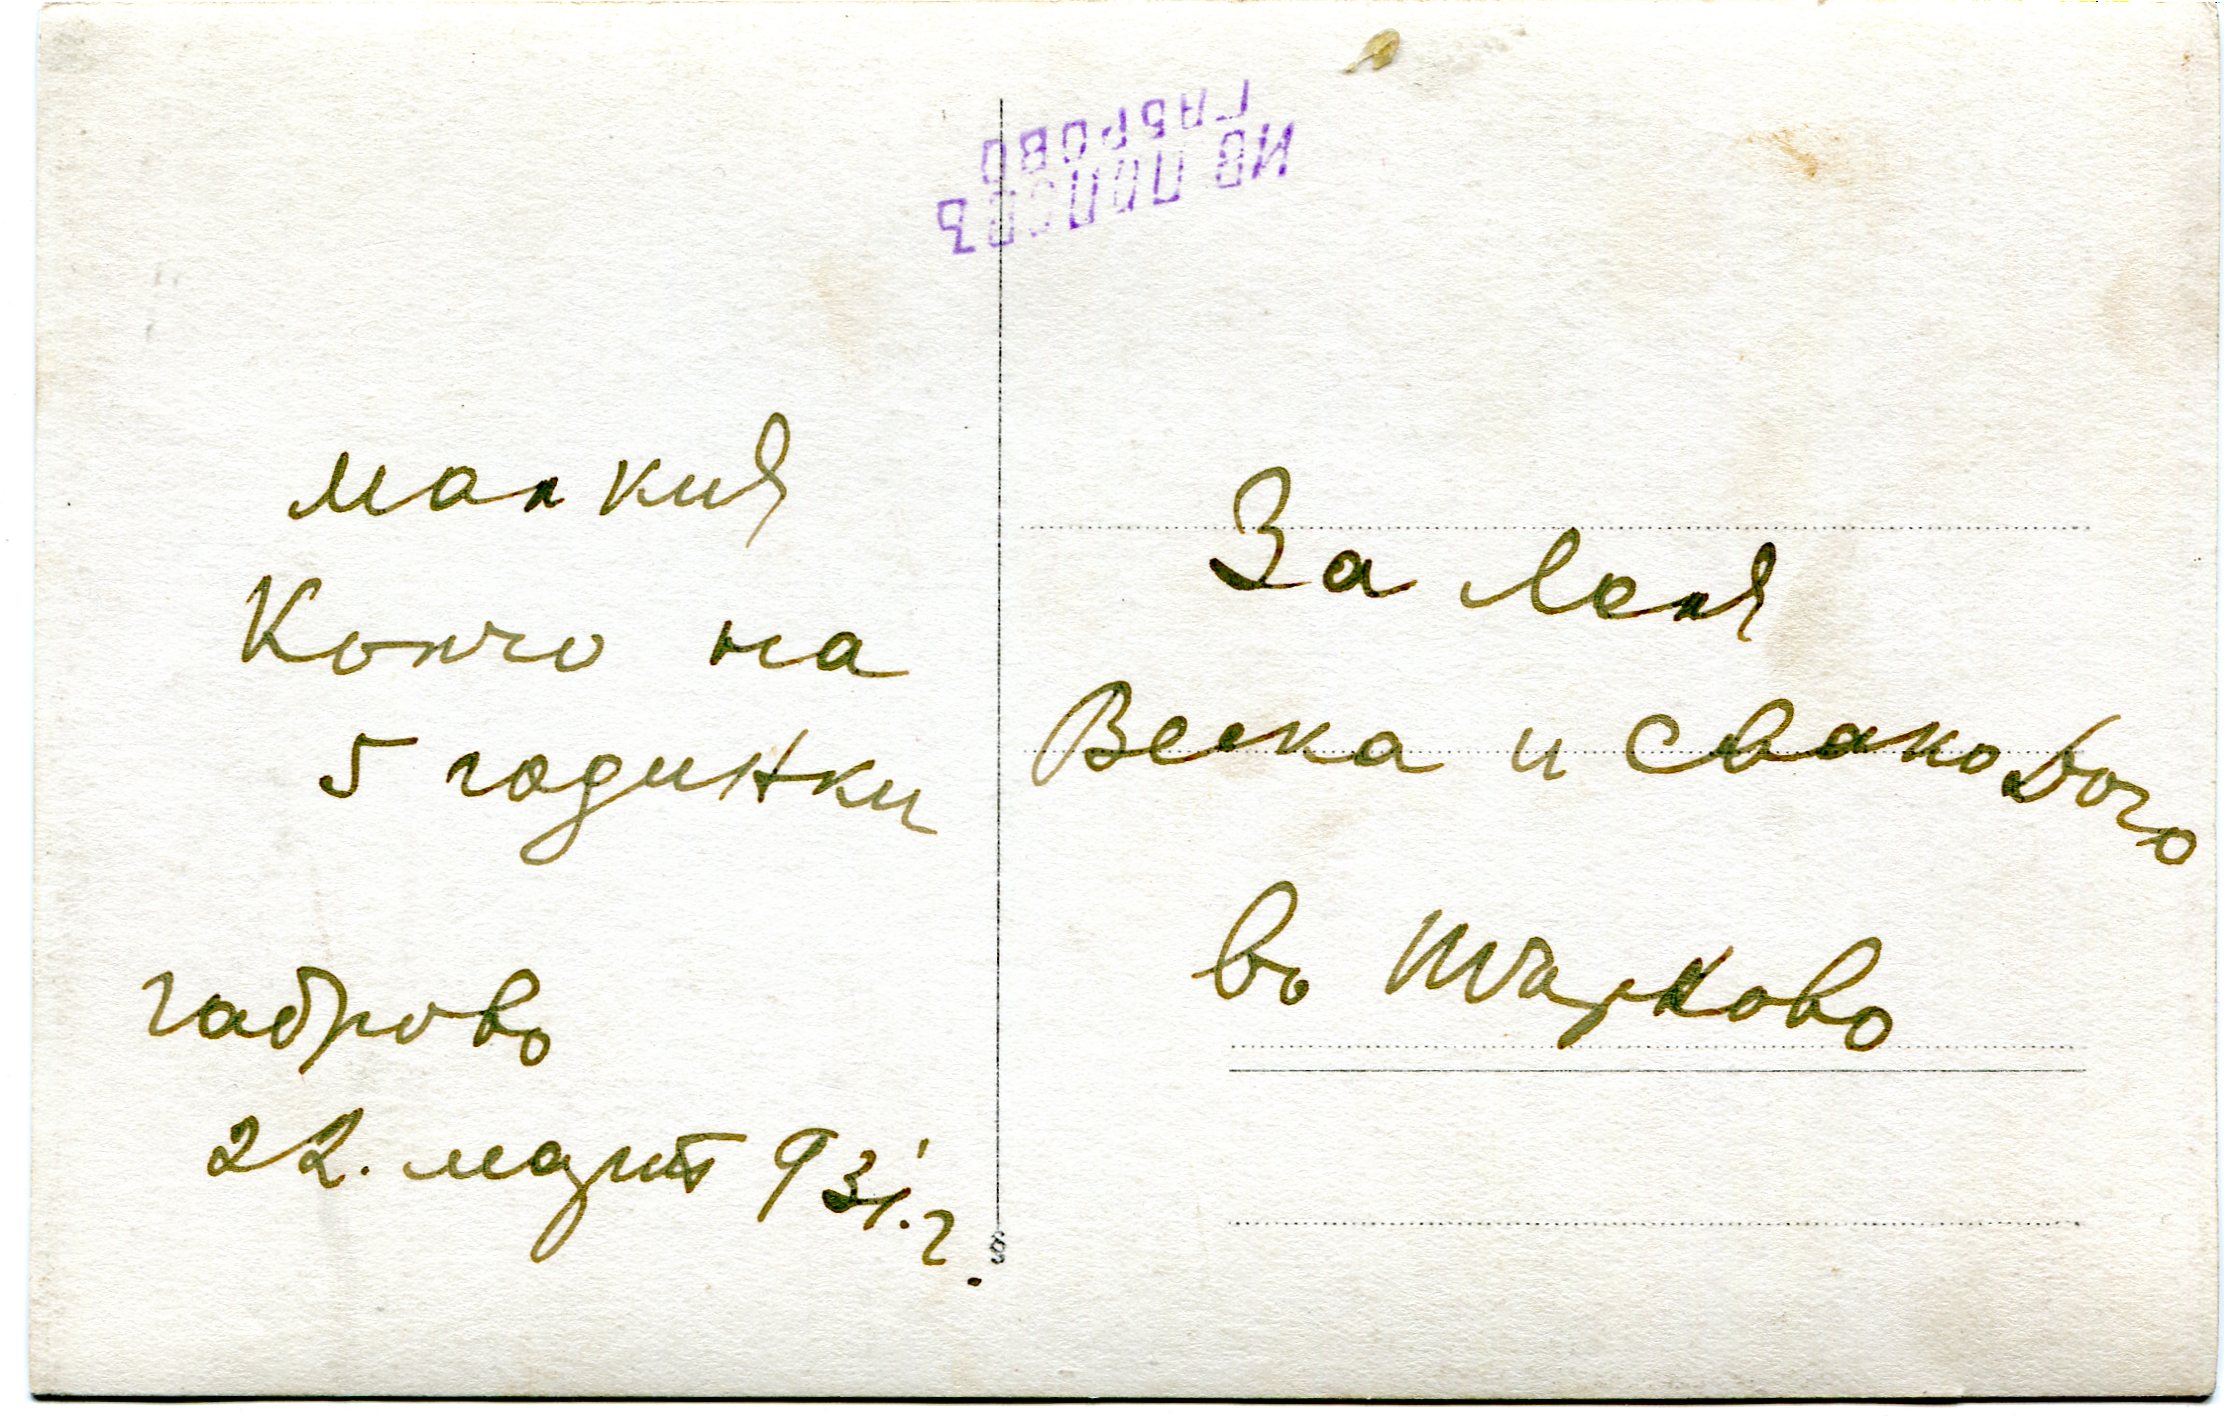 ИВ ПОПОВЪ
ГАБРОВО
малкия
Кончо на
5 годинки
габрово
22. мартъ 931.г.
За леля
Веска и свако Бочо
въ Търково